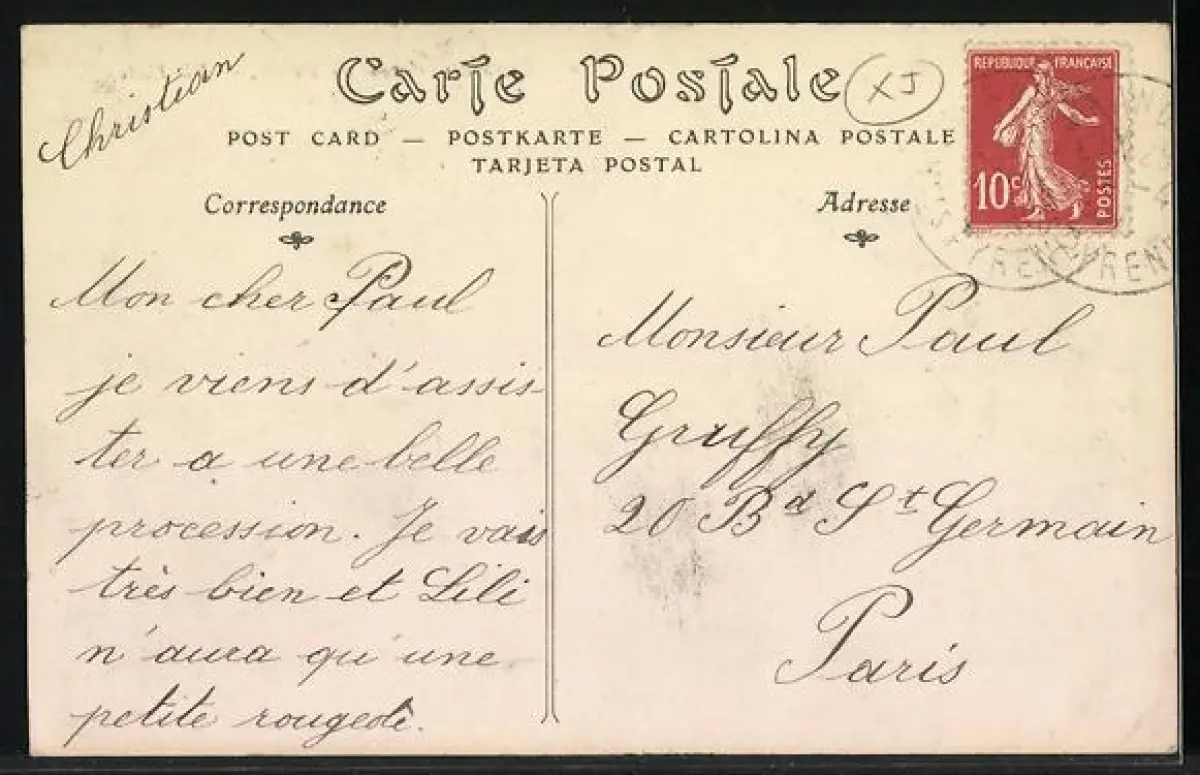 Christian
Carte Postale
XJ
POST CARD — POSTKARTE — CARTOLINA POSTALE
TARJETA POSTAL
REPUBLIQUE FRANÇAISE
10c
POSTES
Correspondance
Mon cher Paul
je viens d'assis-
ter a une belle
procession. Je vais
très bien et Lili
n'aura qu'une
petite rougeole.
Adresse
Monsieur Paul
Gruffy
20 Bd St Germain
Paris